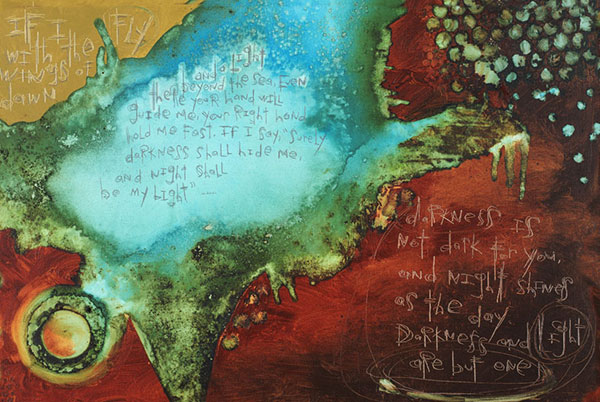 IF I FLY
with the
wings of
dawn
and alight
beyond the sea, Even
there your hand will
guide me, your right hand
hold me fast. If I say, "Surely
darkness shall hide me,
and night shall
be my light" —
darkness is
not dark for you,
and night shines
as the day.
Darkness and light
are but one